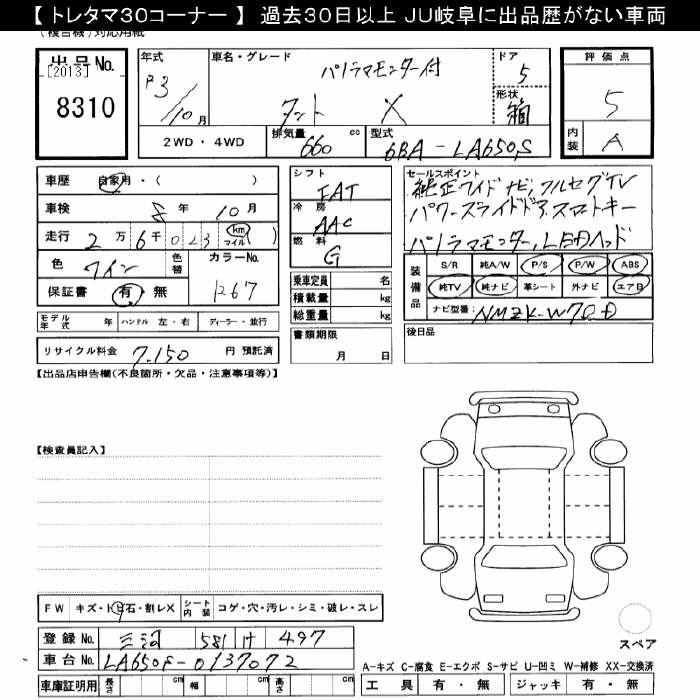 【 トレタマ30コーナー 】 過去30日以上 JU岐阜に出品歴がない車両
(複合機)対応用紙
出品No.
[2013]
8310
年式
R3/10月
車名・グレード
パノラマモニター付
タント X
ドア
5
形状
箱
評価点
5
内装
A
2WD・4WD
排気量 660 cc
型式 6BA-LA650S
車歴 自家用・( )
車検 8年 10月
走行 2万6千023 km マイル ( )
色 ワイン
色替
カラーNo. R67
保証書 有・無
モデル年式 年 ハンドル 左・右 ディーラー・並行
リサイクル料金 7,150 円 預託済
シフト
IAT
冷房
AAC
燃料
G
乗車定員 名
積載量 kg
総重量 kg
書類期限
月 日
セールスポイント
純正ワイドナビ,フルセグTV
パワースライドドア,スマートキー
パノラマモニター,LEDヘッド
装備品
S/R 純A/W P/S P/W ABS
純TV 純ナビ 革シート 外ナビ エアB
ナビ型番 NMZK-W70D
後日品
【出品店申告欄(不良箇所・欠品・注意事項等)】
【検査員記入】
FW キズ・ト石・割レX
シート内装 コゲ・穴・汚レ・シミ・破レ・スレ
登録No. 三河 581 け 497
車台No. LA650S-0137072
車庫証明用 長さ cm 幅 cm 高さ cm
スペア
A-キズ C-腐食 E-エクボ S-サビ U-凹ミ W-補修 XX-交換済
工具 有・無 ジャッキ 有・無